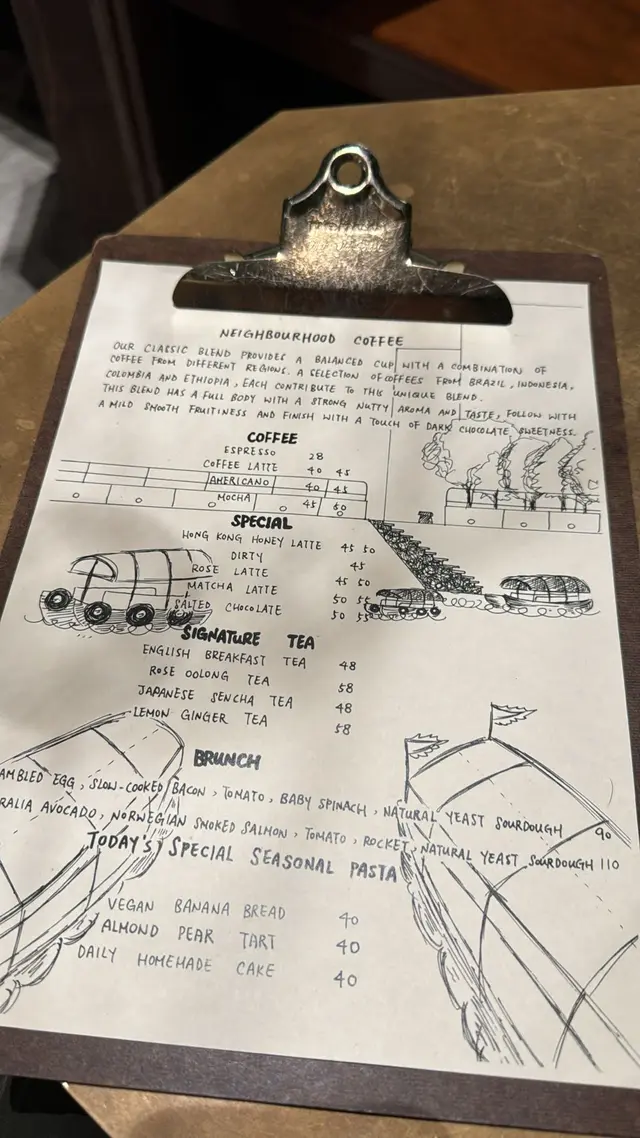 NEIGHBOURHOOD COFFEE
OUR CLASSIC BLEND PROVIDES A BALANCED CUP WITH A COMBINATION OF
COFFEE FROM DIFFERENT REGIONS. A SELECTION OF COFFEES FROM BRAZIL, INDONESIA,
COLOMBIA AND ETHIOPIA, EACH CONTRIBUTE TO THIS UNIQUE BLEND.
THIS BLEND HAS A FULL BODY WITH A STRONG NUTTY AROMA AND TASTE, FOLLOW WITH
A MILD SMOOTH FRUITINESS AND FINISH WITH A TOUCH OF DARK CHOCOLATE SWEETNESS.
COFFEE
ESPRESSO 28
COFFEE LATTE 40 45
AMERICANO 40 45
MOCHA 45 50
SPECIAL
HONG KONG HONEY LATTE 45 50
DIRTY 45
ROSE LATTE 45 50
MATCHA LATTE 50 55
SALTED CHOCOLATE 50 55
SIGNATURE TEA
ENGLISH BREAKFAST TEA 48
ROSE OOLONG TEA 58
JAPANESE SENCHA TEA 48
LEMON GINGER TEA 58
BRUNCH
AMBLED EGG, SLOW-COOKED BACON, TOMATO, BABY SPINACH, NATURAL YEAST SOURDOUGH 90
RALIA AVOCADO, NORWEGIAN SMOKED SALMON, TOMATO, ROCKET, NATURAL YEAST SOURDOUGH 110
TODAY'S SPECIAL SEASONAL PASTA
VEGAN BANANA BREAD 40
ALMOND PEAR TART 40
DAILY HOMEMADE CAKE 40